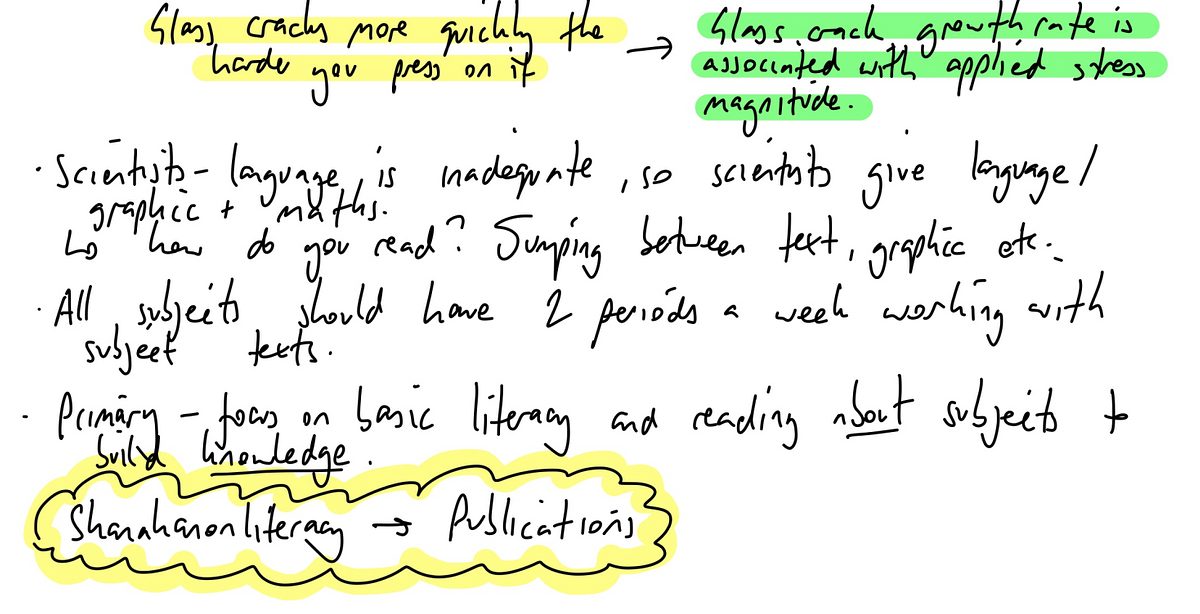 Glass cracks more quickly the
harder you press on it
→ Glass crack growth rate is
associated with applied stress
magnitude.
· Scientists - language is inadequate, so scientists give language/
graphic + maths.
↳ how do you read? Jumping between text, graphic etc.
· All subjects should have 2 periods a week working with
subject texts.
· Primary - focus on basic literacy and reading about subjects to
build knowledge.
Shanahanonliteracy → Publications